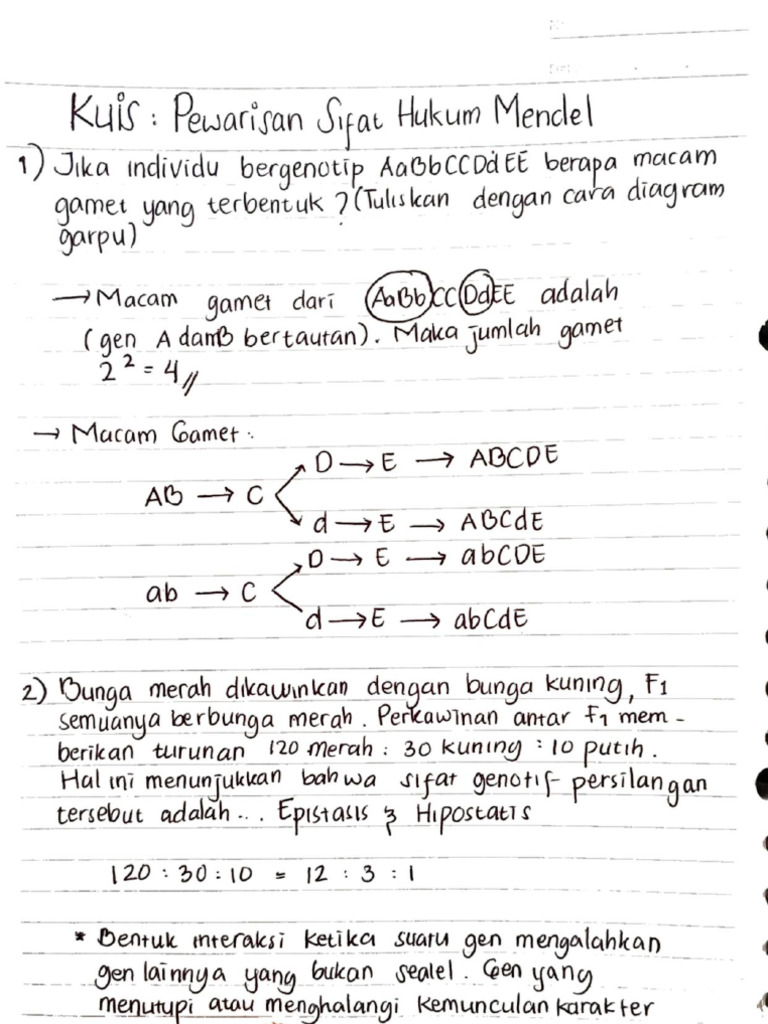 Kuis : Pewarisan Sifat Hukum Mendel
1) Jika individu bergenotip AaBbCCDdEE berapa macam
gamet yang terbentuk ? (Tuliskan dengan cara diagram
garpu)
→ Macam gamet dari AaBbCCDdEE adalah
(gen A dan B bertautan). Maka jumlah gamet
2² = 4 //
→ Macam Gamet :
D → E → ABCDE
AB → C
d → E → ABCdE
D → E → abCDE
ab → C
d → E → abCdE
2) Bunga merah dikawinkan dengan bunga kuning, F1
semuanya berbunga merah. Perkawinan antar F1 mem-
berikan turunan 120 merah : 30 kuning : 10 putih.
Hal ini menunjukkan bahwa sifat genotif persilangan
tersebut adalah... Epistasis & Hipostatis
120 : 30 : 10 = 12 : 3 : 1
* Bentuk interaksi ketika suatu gen mengalahkan
gen lainnya yang bukan sealel. Gen yang
menutupi atau menghalangi kemunculan karakter